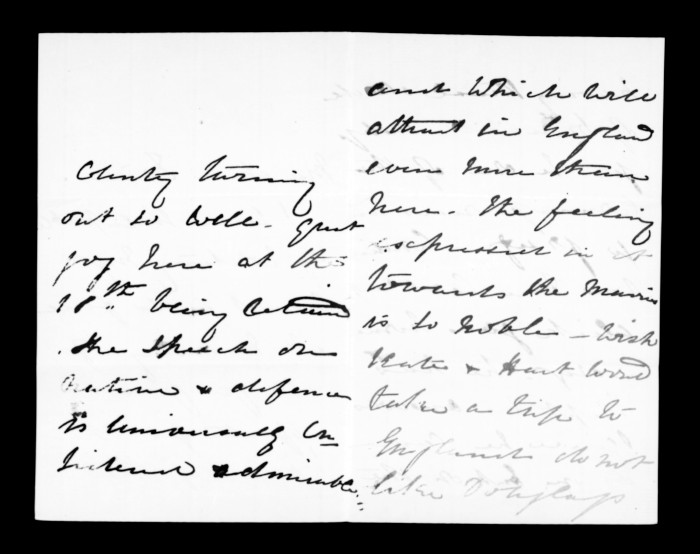 County turning
out so well - great
joy here at the
18th being retained
. the Speech on
native & defence
is universally con
sidered admirable
and which will
attract in England
even more than
here. The feeling
expressed in it
towards the Maories
is so noble - wish
Kate & Hart would
take a trip to
England do not
like Douglas